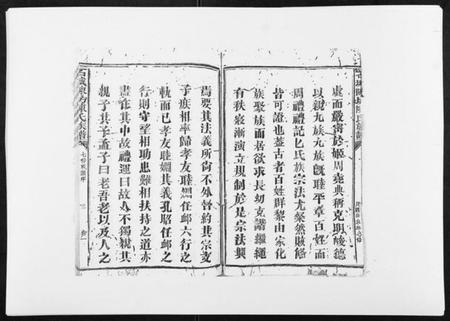 虞而嚴密於姬周堯典稱克明峻德
以親九族九族旣睦平章百姓而
周禮禮記已氏族宗法尤粲然賅備
皆可證也蓋古者百姓羣黎由家化
族聚族而居欲求長幼克諧親繩
有秩寖漸演立規制於是宗法興
焉要其法義所衍不外督約其宗支
子姪相率歸孝友睦婣任卹六行之
軌而已孝友睦婣其義孔昭任卹之
行則守望相助患難相扶持之道亦
盡在其中故禮運曰故人不獨親其
親子其子孟子曰老吾老以及人之